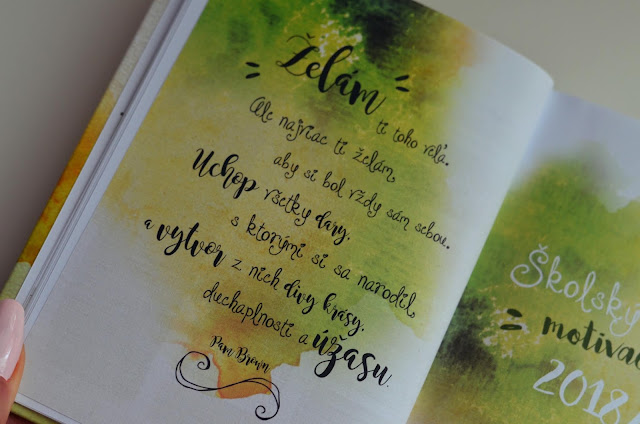 Želám
ti toho veľa.
Ale najviac ti želám,
aby si bol vždy sám sebou.
Uchop všetky dary,
s ktorými si sa narodil,
a vytvor z nich divy krásy,
duchaplnosti a úžasu.
Pam Brown
Školský
motivač
2018/